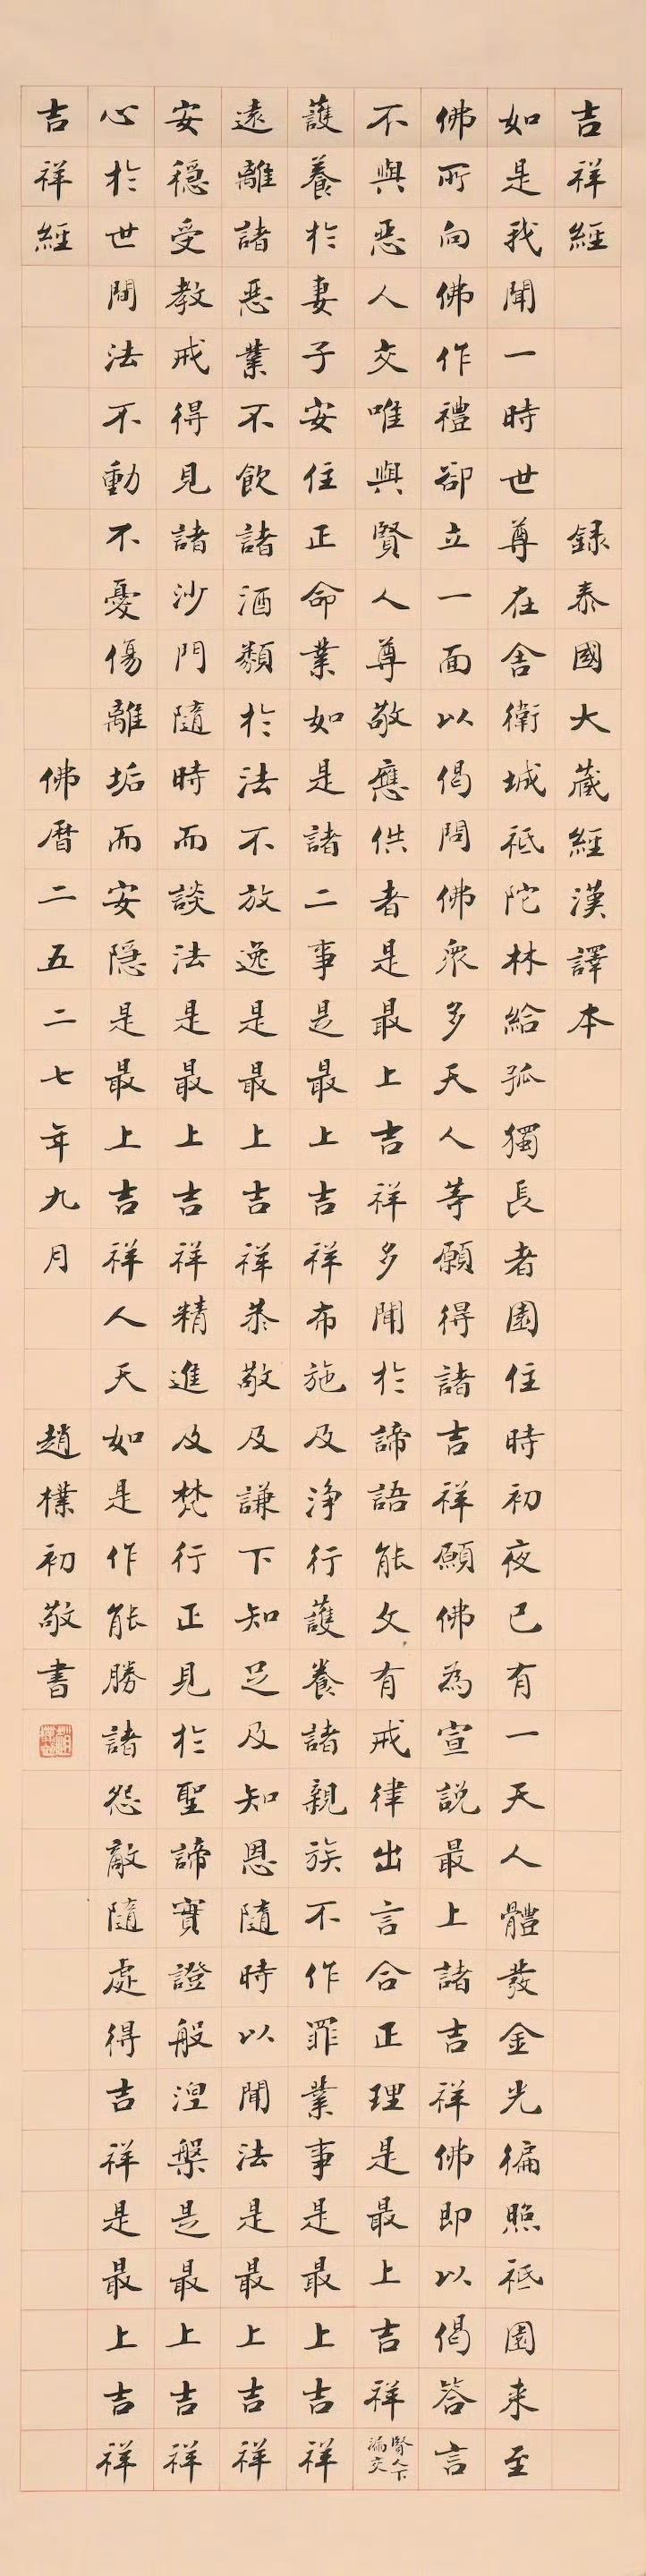 吉祥經 録泰國大藏經漢譯本
如是我聞一時世尊在舍衛城祇陀林給孤獨長者園住時初夜已有一天人體發金光徧照祇園来至
佛所向佛作禮卻立一面以偈問佛衆多天人等願得諸吉祥願佛為宣説最上諸吉祥佛即以偈答言
不與惡人交唯與賢人尊敬應供者是最上吉祥多聞於諦語能文有戒律出言合正理是最上吉祥賢人下漏交
護養於妻子安住正命業如是諸二事是最上吉祥布施及淨行護養諸親族不作罪業事是最上吉祥
遠離諸惡業不飲諸酒類於法不放逸是最上吉祥恭敬及謙下知足及知恩隨時以聞法是最上吉祥
安穩受教戒得見諸沙門隨時而談法是最上吉祥精進及梵行正見於聖諦實證般涅槃是最上吉祥
心於世間法不動不憂傷離垢而安隠是最上吉祥人天如是作能勝諸怨敵隨處得吉祥是最上吉祥
吉祥經 佛曆二五二七年九月 趙樸初敬書